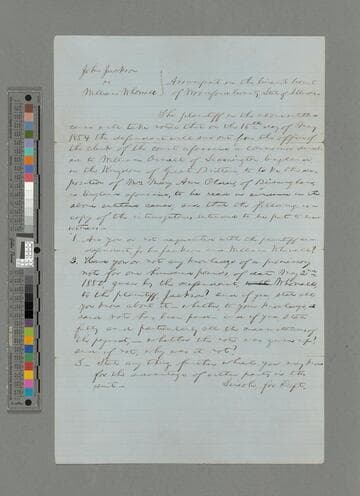 John Jackson
vs
William Whorrall
Assumpsit in the Circuit Court
of Woodford County State of Illinois
The plaintiff in the above entitled
cause will take notice that on the 15th day of May
1854 the defendant will sue out from the office of
the clerk of the court aforesaid a commission
to William of Leamington England
in the Kingdom of Great Britain to take the de-
position of Mrs Mary Ann of Birmingham
in England aforesaid to be read in evidence in the
above entitled cause, and that the following is a
copy of the interrogatories intended to be put to said
witness.
1. Are you or not acquainted with the plaintiff and
defendant John Jackson and William Whorrall?
2. Have you or not any knowledge of a promissory
note for one hundred pounds of date May 2nd
1850 given by the defendant Whorrall
to the plaintiff Jackson? and if yea state all
you know about it whether to your knowledge
said note has been paid and if yea state
fully and particularly all the circumstances of
the payment, whether the note was given up?
and if not, why was it not?
3. State any thing further which you may know
for the advantage of either party in this
suit.
Lincoln for Deft.